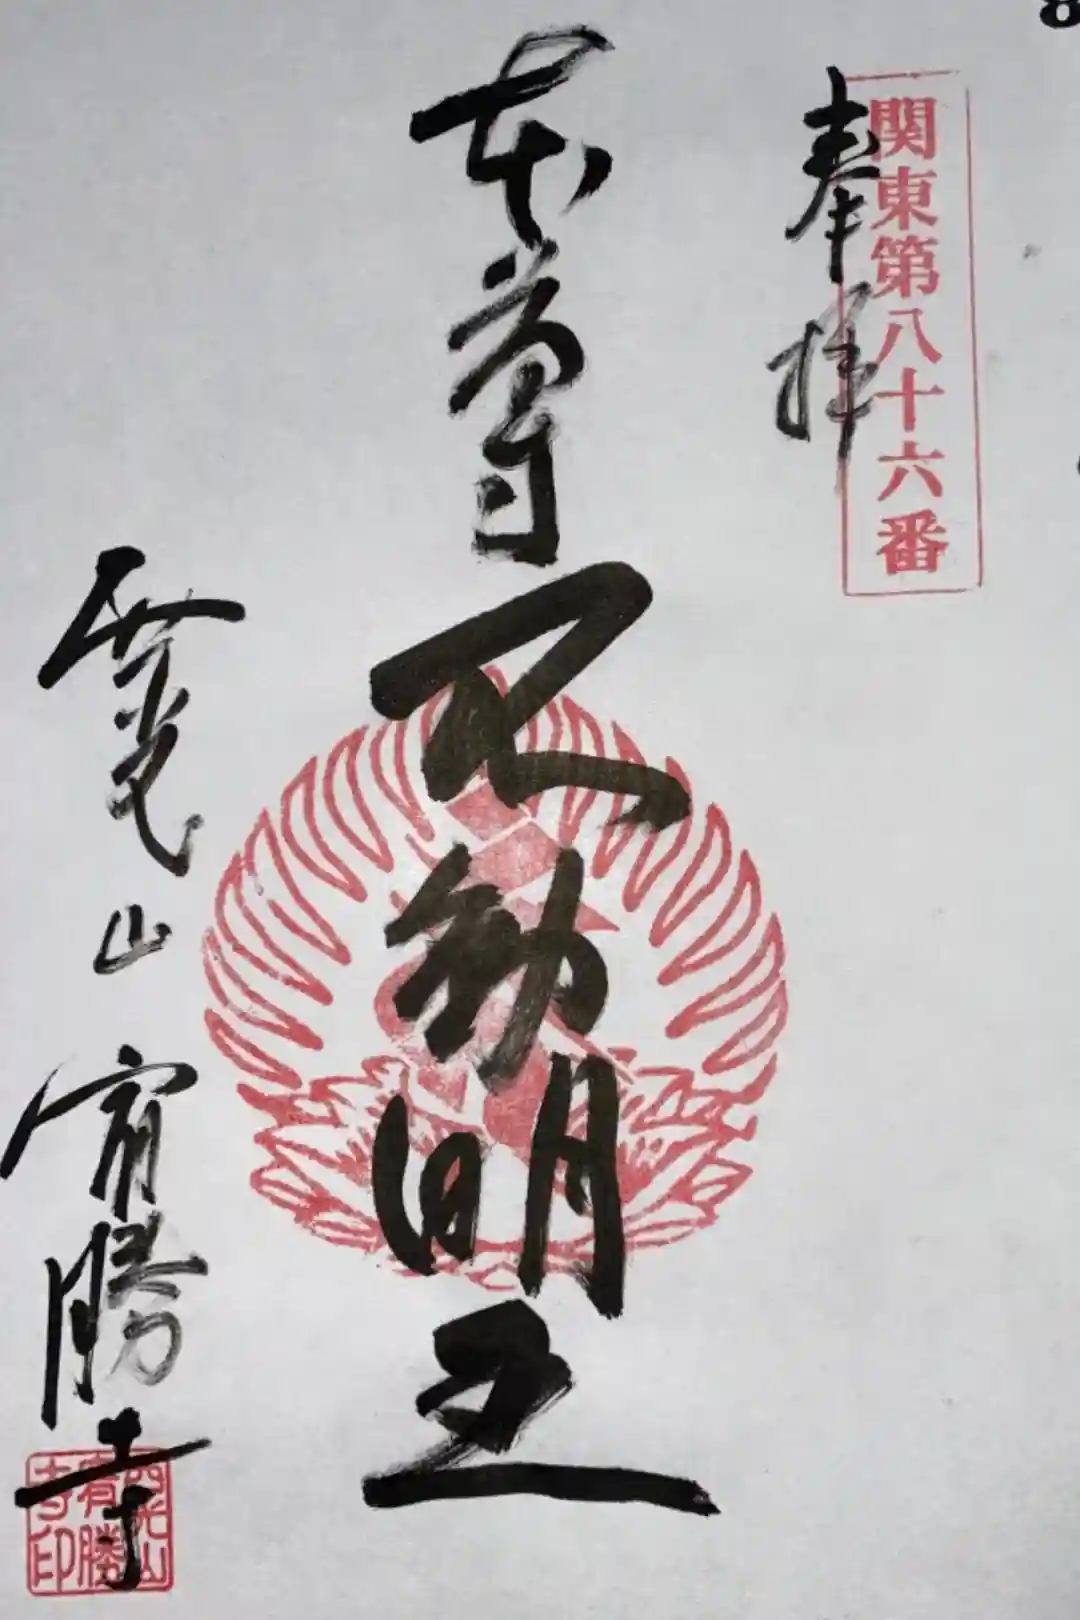 関東第八十六番
奉拝
本尊不動明王
西光山 宥勝寺
西光山
宥勝
寺印